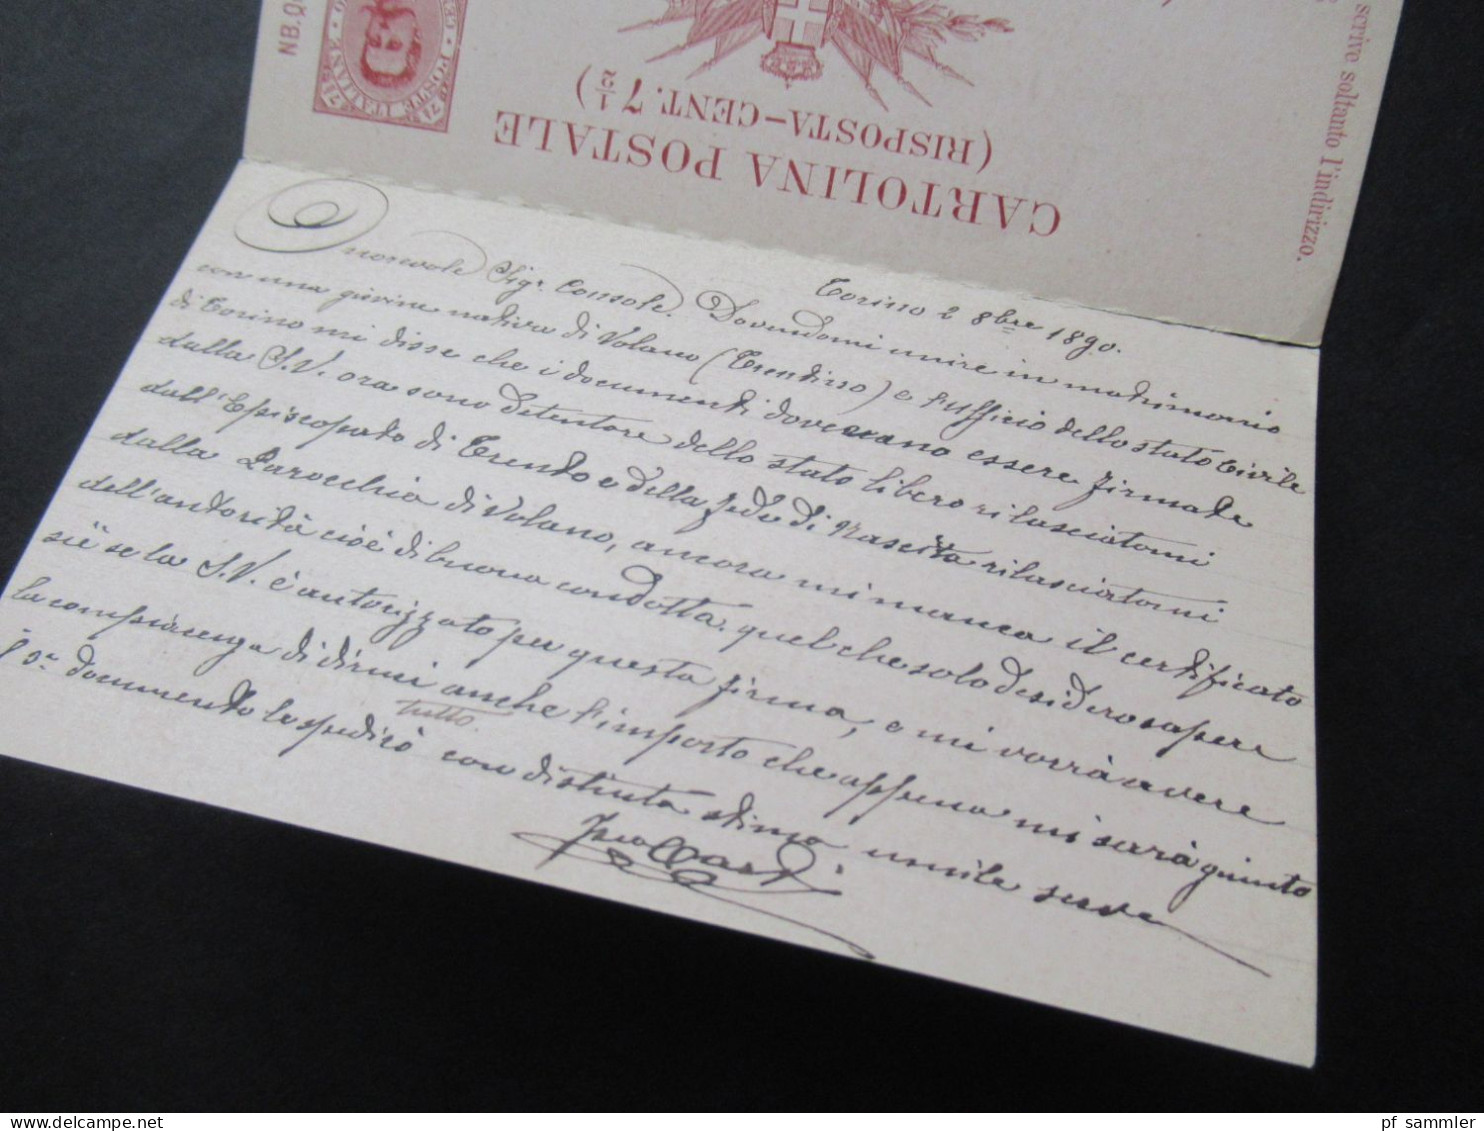 NB.
POSTE ITALIANE
CARTOLINA POSTALE
(RISPOSTA-CENT. 7 1/2)
scrive soltanto l'indirizzo.
Torino 2 8bre 1890.
Onorevole Sigr. Console. Dovendomi unire in matrimonio
con una giovine nativa di Volano (Trentino) e l'Ufficio dello stato Civile
di Torino mi disse che i documenti dovevano essere firmate
dalla S.V. ora sono detentore dello stato libero rilasciatomi
dall'Episcopato di Trento e della fede di Nascita rilasciatomi
dalla Parocchia di Volano, ancora mi manca il certificato
dell'autorità cioè di buona condotta. quel che solo desidero sapere
siè se la S.V. è autorizzato per questa firma, e mi vorrà avere
la compiacenza di dirmi anche l'importo che appena mi sarà giunto
tutto
il 3º documento lo spedirò con distinta stima umile servo
pf sammler